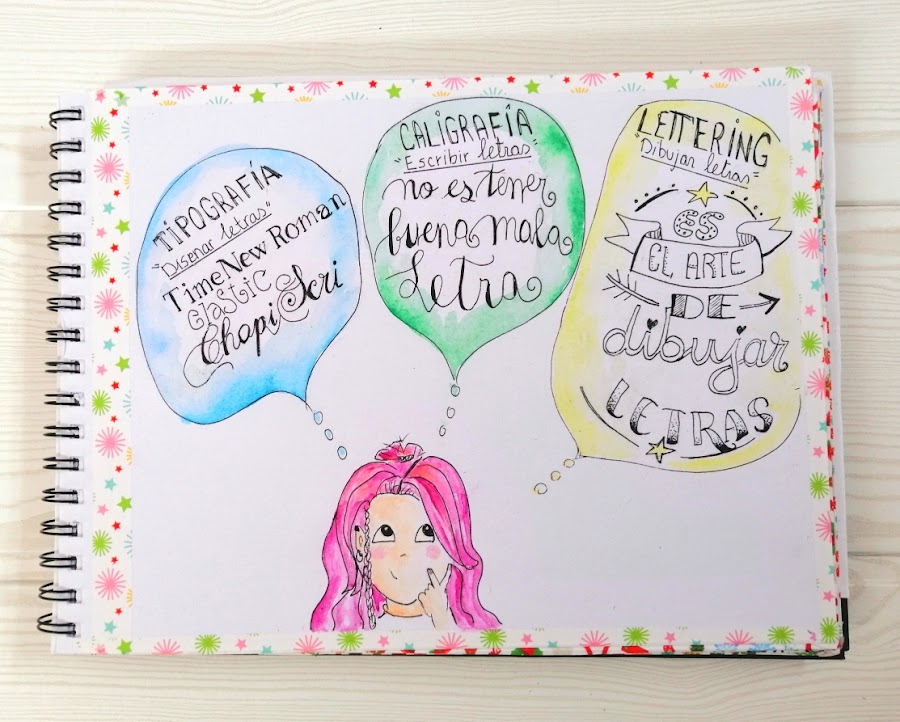 TIPOGRAFÍA
"Disenar letras"
Time New Roman
Glastic
Chopi Scri
CALIGRAFÍA
"Escribir letras"
no es tener
buena mala
Letra
LETTERING
"Dibujar letras"
ES
EL ARTE
DE
dibujar
LETRAS